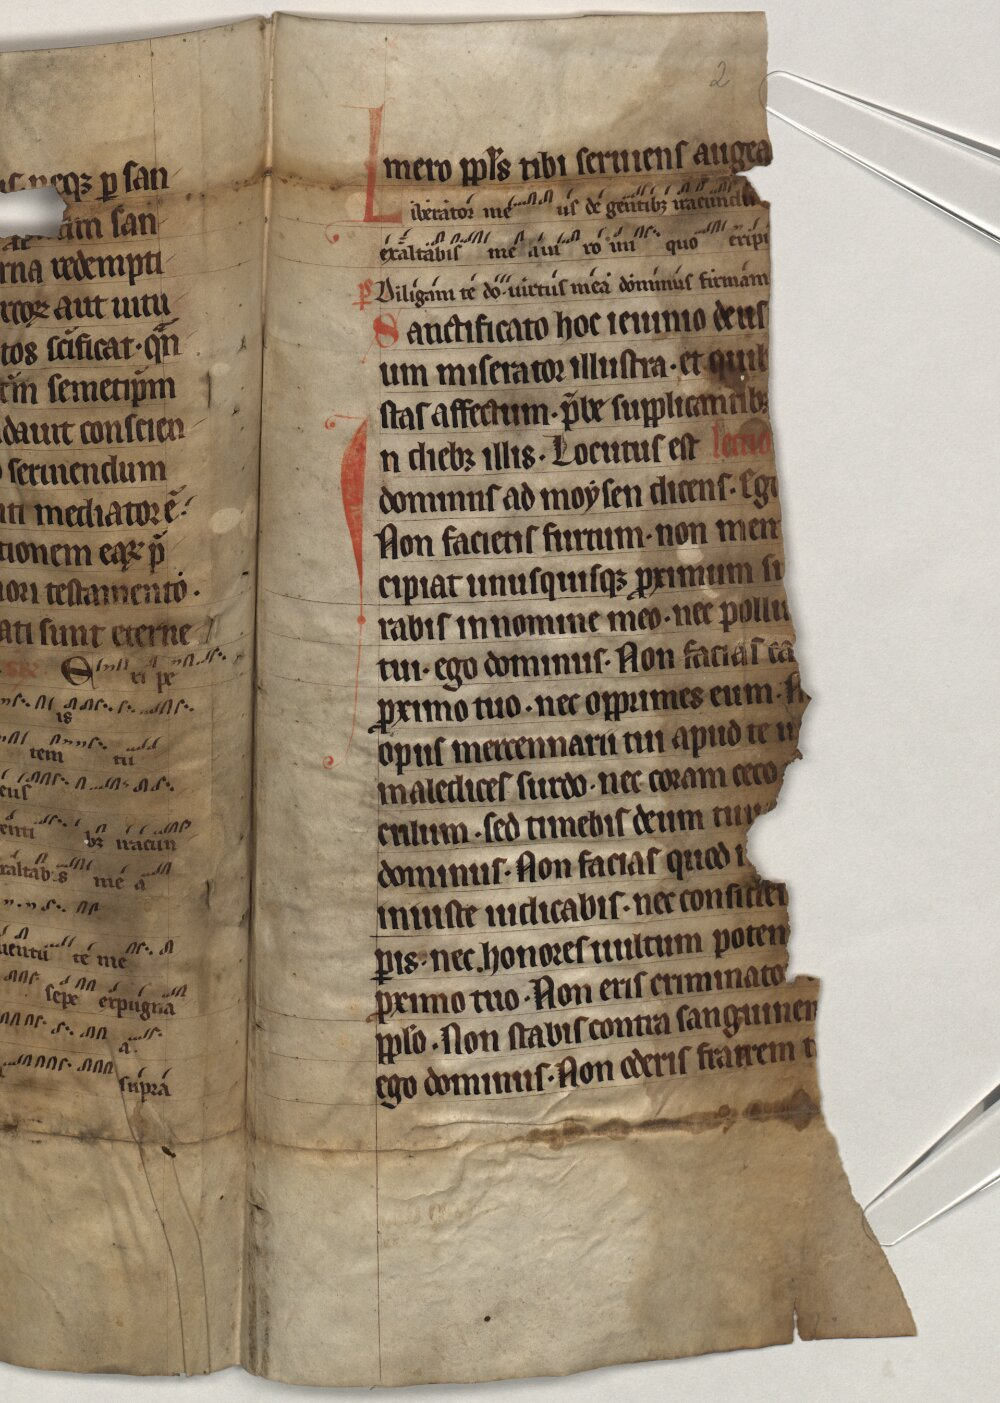 neqꝫ ꝑ san
san
rna redempti
aut uitu
tos sc̄ificat · qn̄
semetip̄m
dauit conscien
seruiendum
mediator ē
tionem eaꝝ p̄
iori testamento ·
ati sunt eterne
is
tem tu
bꝫ iracun
me a
te me
sepe expugna
a
supra
2
mero ppl̄s tibi seruiens augea
Liberator me us de gentibꝫ iracundis
exaltabis me a ro qui quo eripi
P Diligam te do uirtus mea dominus firmam
Sanctificato hoc ieiunio deus
um miserator illustra · et quib
stas affectum · p̄be supplicantibꝫ
In diebꝫ illis · Locutus est lectio
dominus ad moẏsen dicens · Ego
Non facietis furtum · non men
cipiat unusquisqꝫ ꝓximum su
rabis in nomine meo · nec pollu
tui · ego dominus · Non facias ca
ꝓximo tuo · nec opprimes eum · N
opus mercennarii tui apud te u
maledices surdo · nec coram ceco
culum · sed timebis deum tuu
dominus · Non facias quod i
iniuste iudicabis · nec consider
ꝑis · nec honores uultum poten
ꝓximo tuo · Non eris criminato
pplo · Non stabis contra sanguinem
ego dominus · Non oderis fratrem t